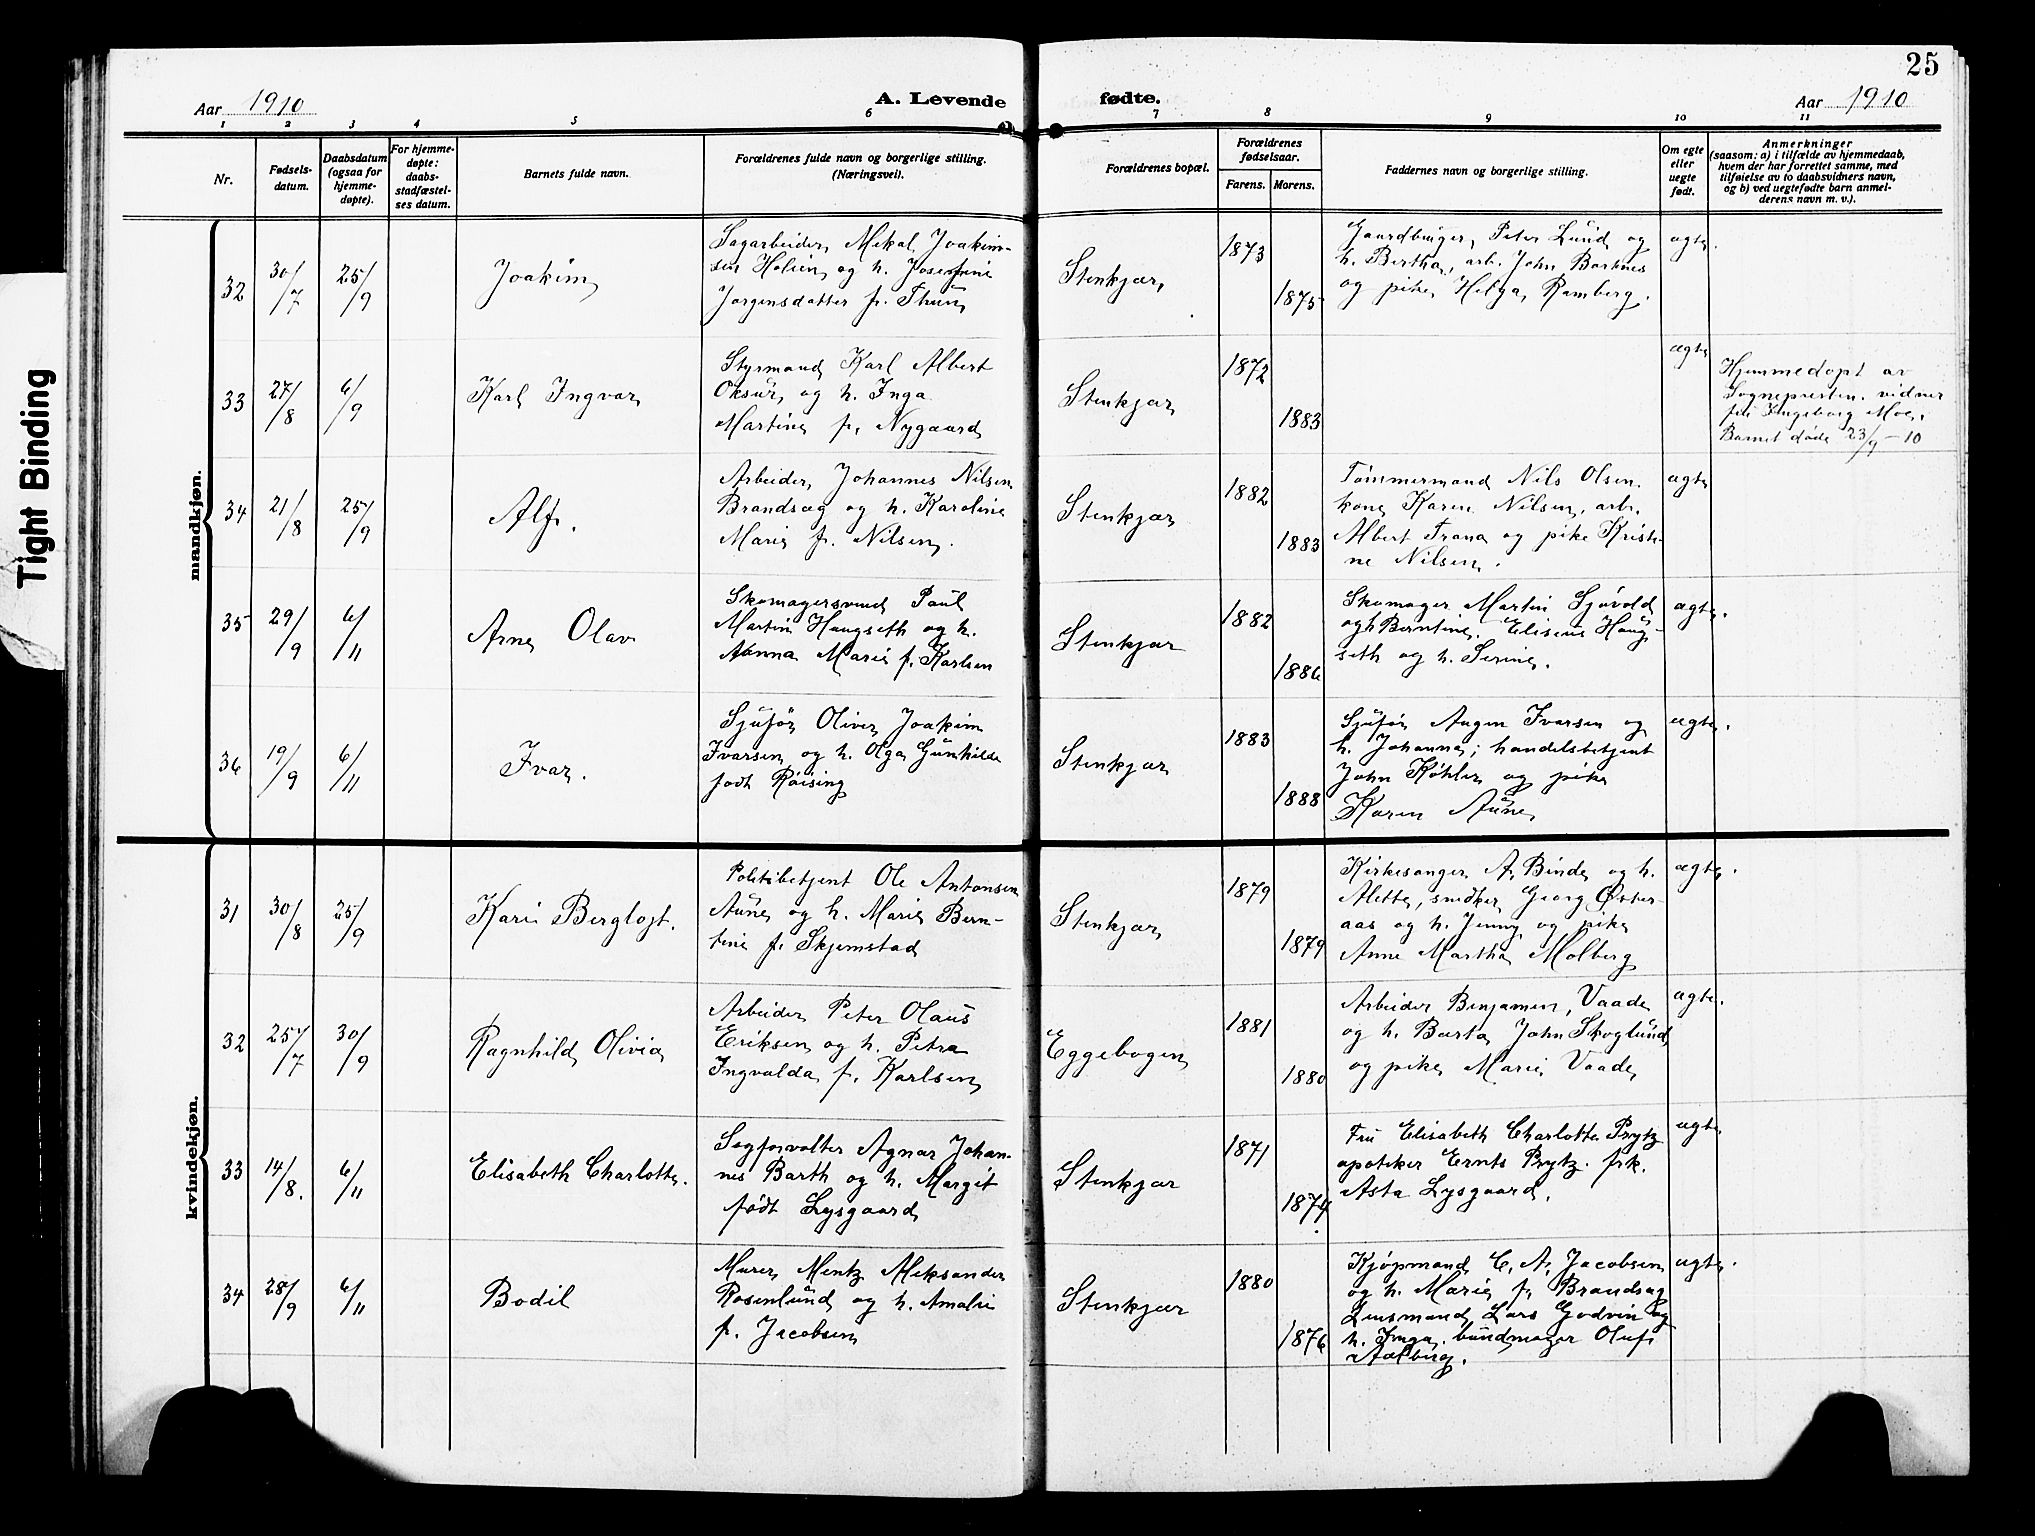 25
Tight Binding
Aar 1910
A. Levende
fødte.
Aar 1910
1 2 3 4 5 6 7 8 9 10 11
Nr.
Fødsels-
datum.
Daabsdatum
(ogsaa for
hjemme-
døpte).
For hjemme-
døpte:
daabs-
stadfæstel-
ses datum.
Barnets fulde navn.
Forældrenes fulde navn og borgerlige stilling.
(Næringsvei).
Forældrenes bopæl.
Forældrenes
fødselsaar.
Farens. Morens.
Faddernes navn og borgerlige stilling.
Om egte
eller
uegte
født.
Anmerkninger
(saasom: a) i tilfælde av hjemmedaab,
hvem der har forrettet samme, med
tilføielse av to daabsvidners navn,
og b) ved uegtefødte barn anmel-
derens navn m. v.).
mandkjøn.
32
30/7
25/9
Joakim
Sagarbeider Mikal Joakim-
sen Holien og h. Josefine
Jørgensdatter f. Thun
Stenkjær
1873
1875
Gaardbruger Peter Lund og
h. Bertha, arb. John Bartnes
og pike Helga Ramberg.
ægte.
33
27/8
6/9
Karl Ingvar
Styrmand Karl Albert
Oksur og h. Inga
Martine f. Nygaard
Stenkjær
1872
1883
ægte
Hjemmedøpt av
Sognepresten. vidner
frk Ingeborg Moe.
Barnet døde 23/9-10
34
21/8
25/9
Alf.
Arbeider Johannes Nilsen
Brandsæg og h. Karoline
Marie f. Nilsen.
Stenkjær
1882
1883
Tømmermand Nils Olsen.
kone Karen Nilsen, arb.
Albert Trana og pike Kristi-
ne Nilsen.
ægte
35
29/9
6/11
Arne Olav
Skomagersvend Paul
Martin Haugseth og h.
Aanna Marie f. Karlsen
Stenkjær
1882
1886
Skomager Martin Sjøvold
og h Berntine. Eliseus Haug-
seth og h. Serine.
ægte.
36
19/9
6/11
Ivar.
Sjufør Oliver Joakim
Ivarsen og h. Olga Gunhilde
født Røising
Stenkjær
1883
1888
Sjufør Augen Ivarsen og
h. Johanna; handelsbetjent
John Køhler og pike
Karen Aune
ægte.
kvindekjøn.
31
30/8
25/9
Kari Bergljot.
Politibetjent Ole Antonsen
Aune og h. Marie Bern-
tine f. Skjemstad
Stenkjær
1879
1879
Kirkesanger A. Binde og h.
Alette, snedker Georg Øster-
aas og h. Jenny og pike
Anne Martha Molberg
ægte.
32
25/7
30/9
Ragnhild Olivia
Arbeider Peter Olaus
Eriksen og h. Petra
Ingvalda f. Karlsen
Eggebogen
1881
1880
Arbeider Benjamin Vaade
og h. Berta John Skoglund
og pike Marie Vaade
ægte.
33
14/8.
6/11
Elisabeth Charlotte.
Sagforvalter Agnar Johan-
nes Barth og h. Margit
født Lysgaard
Stenkjær
1871
1874
Fru Elisabeth Charlotte Prytz
apoteker Ernts Prytz. frk.
Asta Lysgaard.
ægte
34
28/9
6/11
Bodil
Murer Mentz Aleksander
Rosenlund og h. Amalie
f. Jacobsen
Stenkjær
1880
1876
Kjøpmand C. A. Jacobsen
og h. Marie f. Brandsæg
Lensmand Lars Godvin og
h. Inga, bundmager Oluf
Aalberg.
ægte.